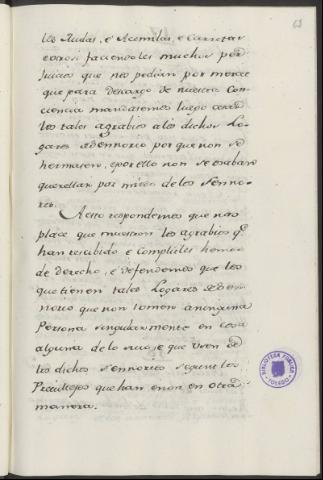 63
les Rudas, é Acemilas, e Carretas
e otros faciendoles muchos per
Juicios que nos pedian por merced
que para descargo de nuestra Con
ciencia mandasemos luego
los tales agrabios alos dichos Lo
gares e Sennorio por que non se
hermasen, e por ello non se osaban
querellar por miedo de los Senno
res.
A esto respondemos que nos
place que muestren los agrabios q.e
han rescibido e Complirles hemos
de derecho, é defendemos que los
que tienen tales Logares de Sen
norio que non tomen a ninguna
Persona singularmente en cosa
alguna de lo suio, e que usen de
los dichos Sennorios segunt los
Previlejos que han e non en otra
manera.
BIBLIOTECA PUBLICA
TOLEDO